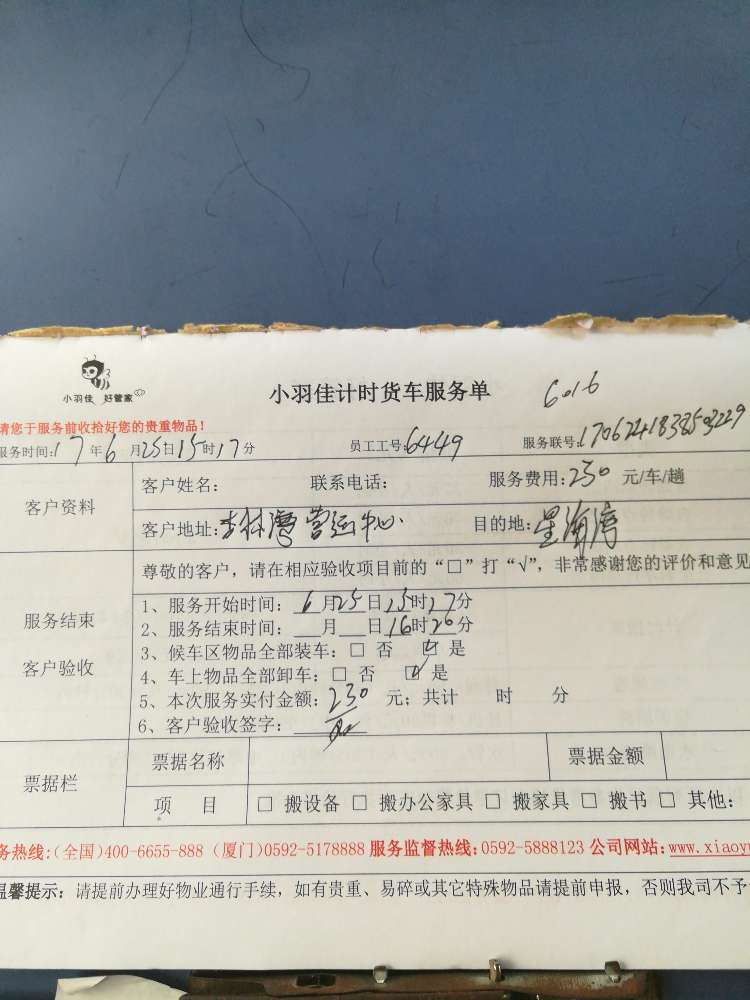 小羽佳 好管家
小羽佳计时货车服务单
6016
请您于服务前收拾好您的贵重物品!
服务时间:17年6月25日15时17分 员工工号:6449 服务联号:1706241838503229
客户资料
客户姓名: 联系电话: 服务费用:230 元/车/趟
客户地址:杏林湾营运中心 目的地:星海湾
服务结束
客户验收
尊敬的客户,请在相应验收项目前的“□”打“√”,非常感谢您的评价和意见
1、服务开始时间:6月25日15时17分
2、服务结束时间:___月___日16时20分
3、候车区物品全部装车:□ 否 ☑ 是
4、车上物品全部卸车:□ 否 ☑ 是
5、本次服务实付金额:230 元;共计 时 分
6、客户验收签字:
票据栏
票据名称 票据金额
项 目 □ 搬设备 □ 搬办公家具 □ 搬家具 □ 搬书 □ 其他:
务热线:(全国)400-6655-888 (厦门)0592-5178888 服务监督热线:0592-5888123 公司网站:www.xiaoyu
温馨提示:请提前办理好物业通行手续,如有贵重、易碎或其它特殊物品请提前申报,否则我司不予